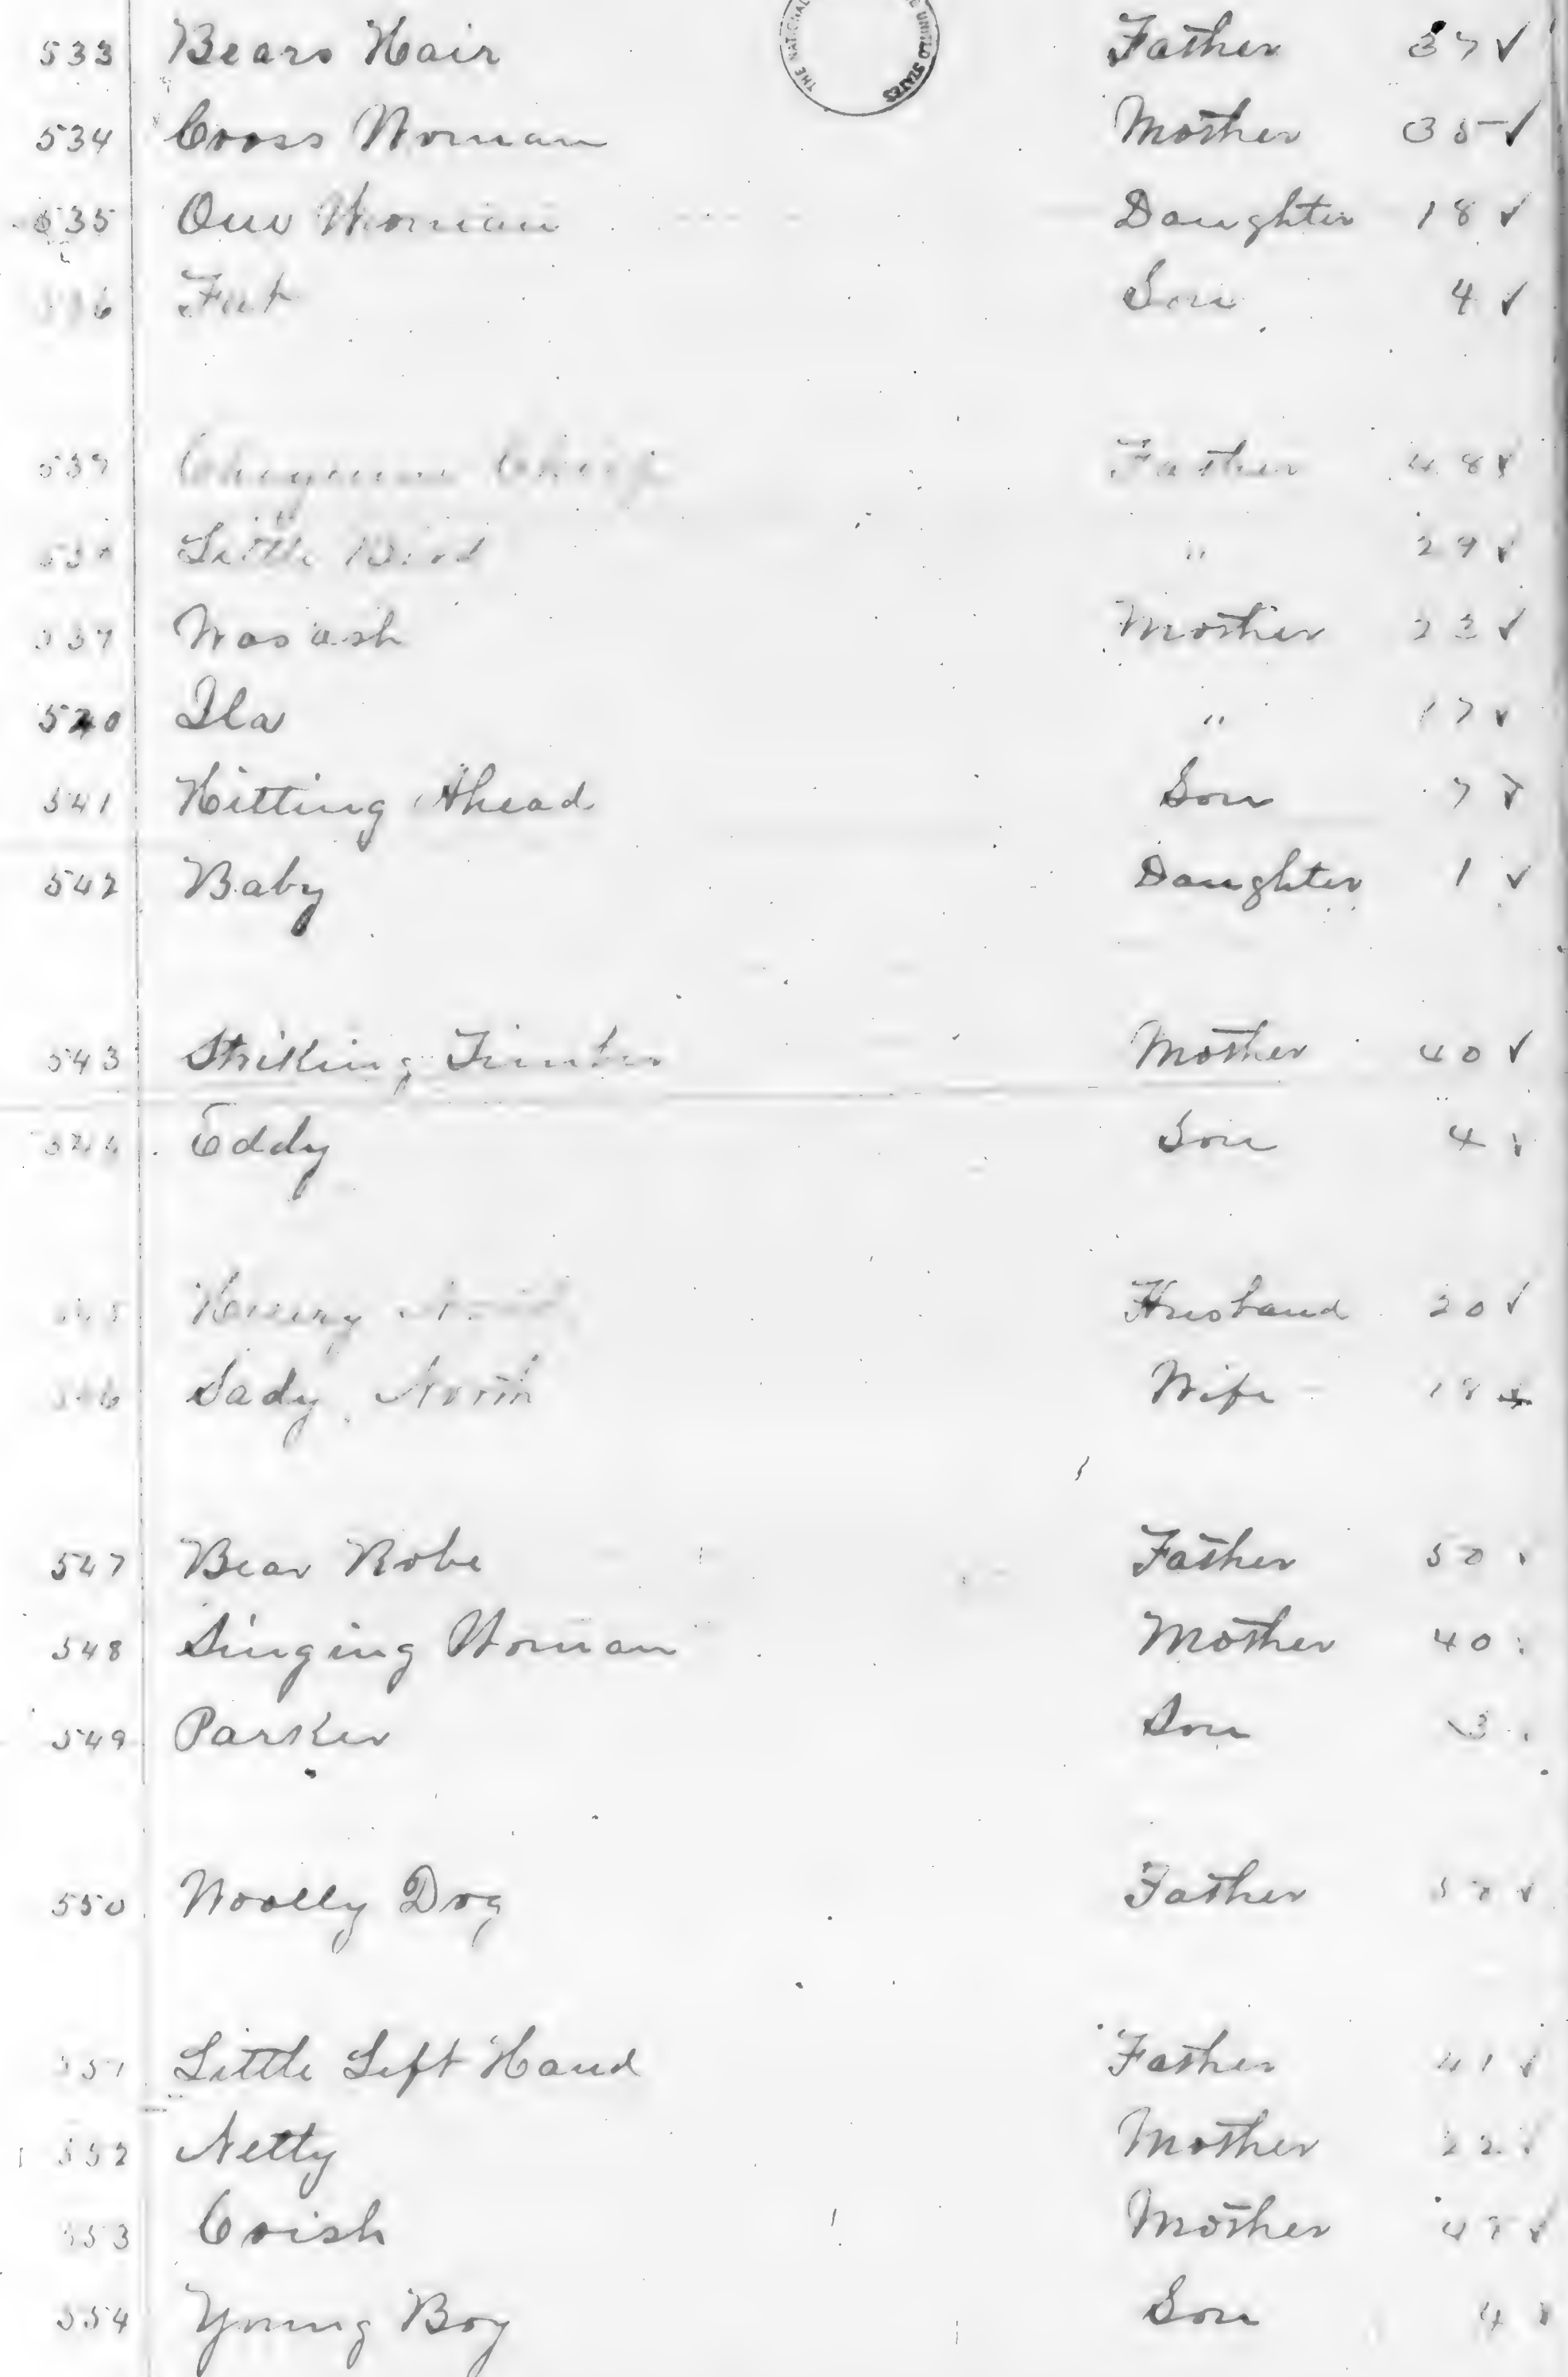 THE NATIONAL UNITED STATES
533 Bears Hair Father 37 ✓
534 Cross Woman Mother 35 ✓
535 One Woman Daughter 18 ✓
Son 4 ✓
Cheyenne Chief Father 48 ✓
Little Bird " 29 ✓
Was ash Mother 23 ✓
540 Ila " 17 ✓
541 Hitting Ahead Son 7 ✓
542 Baby Daughter 1 ✓
543 Striking Timber Mother 40 ✓
544 Eddy Son 4 ✓
Henry Husband 20 ✓
546 Sady North Wife 18
547 Bear Robe Father 50
548 Singing Woman Mother 40
549 Parker Son 3
550 Woolly Dog Father
551 Little Left Hand Father 41 ✓
552 Netty Mother 22 ✓
553 Crish Mother 47 ✓
554 Young Boy Son 4